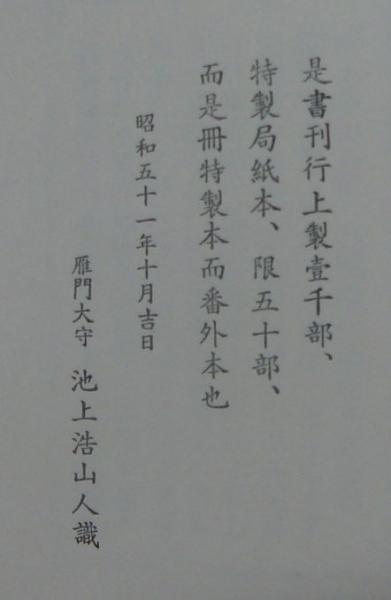 是書刊行上製壹千部、
特製局紙本、限五十部、
而是冊特製本而番外本也
昭和五十一年十月吉日
雁門大守 池上浩山人識